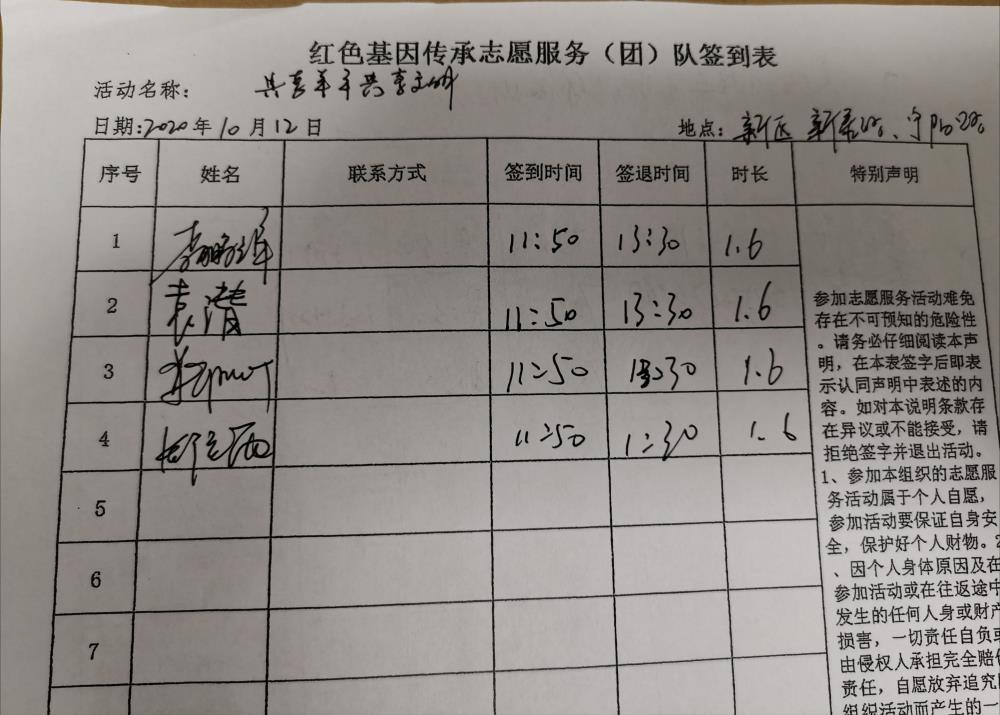 红色基因传承志愿服务（团）队签到表
活动名称： 共享单车共享文明
日期:2020年10月12日 地点： 新区
序号 姓名 联系方式 签到时间 签退时间 时长 特别声明
1 11:50 13:30 1.6
2 袁清 11:50 13:30 1.6
3 11:50 13:30 1.6
4 11:50 1:30 1.6
5
6
7
参加志愿服务活动难免
存在不可预知的危险性
。请务必仔细阅读本声
明，在本表签字后即表
示认同声明中表述的内
容。如对本说明条款存
在异议或不能接受，请
拒绝签字并退出活动。
1、参加本组织的志愿服
务活动属于个人自愿，
参加活动要保证自身安
全，保护好个人财物。2
、因个人身体原因及在
参加活动或在往返途中
发生的任何人身或财产
损害，一切责任自负或
由侵权人承担完全赔偿
责任，自愿放弃追究
组织活动而产生的一